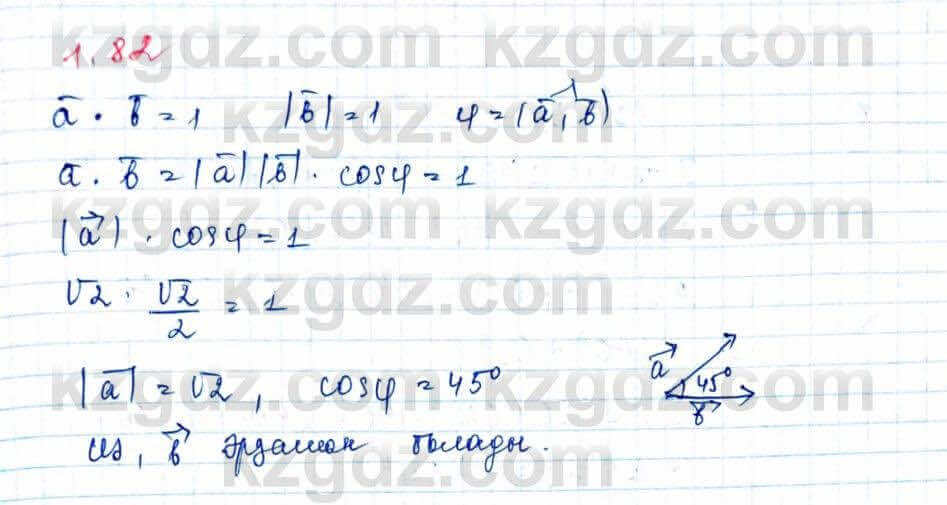 1.82
a̅ · b̅ = 1 |b̅| = 1 φ = (a̅, b̅)
a̅ · b̅ = |a̅| |b̅| · cosφ = 1
|a⃗| · cosφ = 1
√2 · √2/2 = 1
|a⃗| = √2, cosφ = 45°
a⃗ 45° b⃗
b⃗ әрдайым болады.
kzgdz.com kzgdz.com
kzgdz.com kzgdz.com
kzgdz.com kzgdz.com
kzgdz.com kzgdz.com
kzgdz.com kzgdz.com
kzgdz.com kzgdz.com